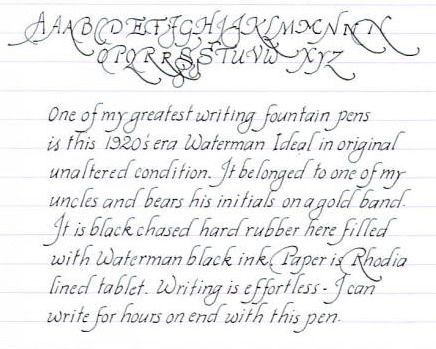 A A A B C D E F F G G H H I J J K L M M N N N
O P Q R R S S S T U V W X Y Z
One of my greatest writing fountain pens
is this 1920's era Waterman Ideal in original
unaltered condition. It belonged to one of my
uncles and bears his initials on a gold band.
It is black chased hard rubber here filled
with Waterman black ink. Paper is Rhodia
lined tablet. Writing is effortless - I can
write for hours on end with this pen.